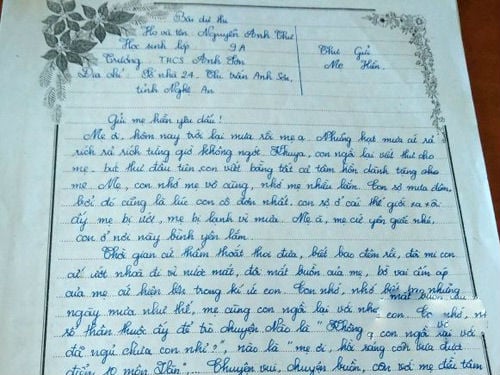 Bài dự thi
Họ và tên Nguyễn Anh Thư
Học sinh lớp 9A
Trường THCS Anh Sơn
Địa chỉ Số nhà 24, Thị trấn Anh Sơn,
tỉnh Nghệ An
Thư Gửi
Mẹ Hiền.
Gửi mẹ hiền yêu dấu!
Mẹ ơi, hôm nay trời lại mưa rồi mẹ ạ. Những hạt mưa cứ rả
rích rả rích từng giờ không ngớt. Khuya, con ngồi lại viết thư cho
mẹ, bức thư đầu tiên con viết bằng tất cả tâm hồn dành tặng cho
mẹ. Mẹ, con nhớ mẹ vô cùng, nhớ mẹ nhiều lắm. Con sợ mưa đêm,
bởi đó cũng là lúc con cô đơn nhất. con sợ ở cái thế giới xa xôi
ấy, mẹ bị ướt, mẹ bị lạnh vì mưa. Mẹ à, mẹ cứ yên giấc nhé,
con ở nơi này bình yên lắm.
Thời gian cứ thấm thoắt thoi đưa, biết bao đêm rồi, đôi mi con
cứ ướt nhoà đi vì nước mắt, đôi mắt buồn của mẹ, bờ vai ấm áp
của mẹ cứ hiện lên trong kí ức con. Con nhớ, nhớ biết những
ngày mưa như thế, mẹ cùng con ngồi lại với
thân thuộc ấy để trò chuyện. Nào là "
đã ngủ chưa con nhỉ?", nào là "mẹ ơi, hồi sáng con vừa được
điểm 10 môn Toán"... Chuyện vui, chuyện buồn, con với mẹ đều tâm